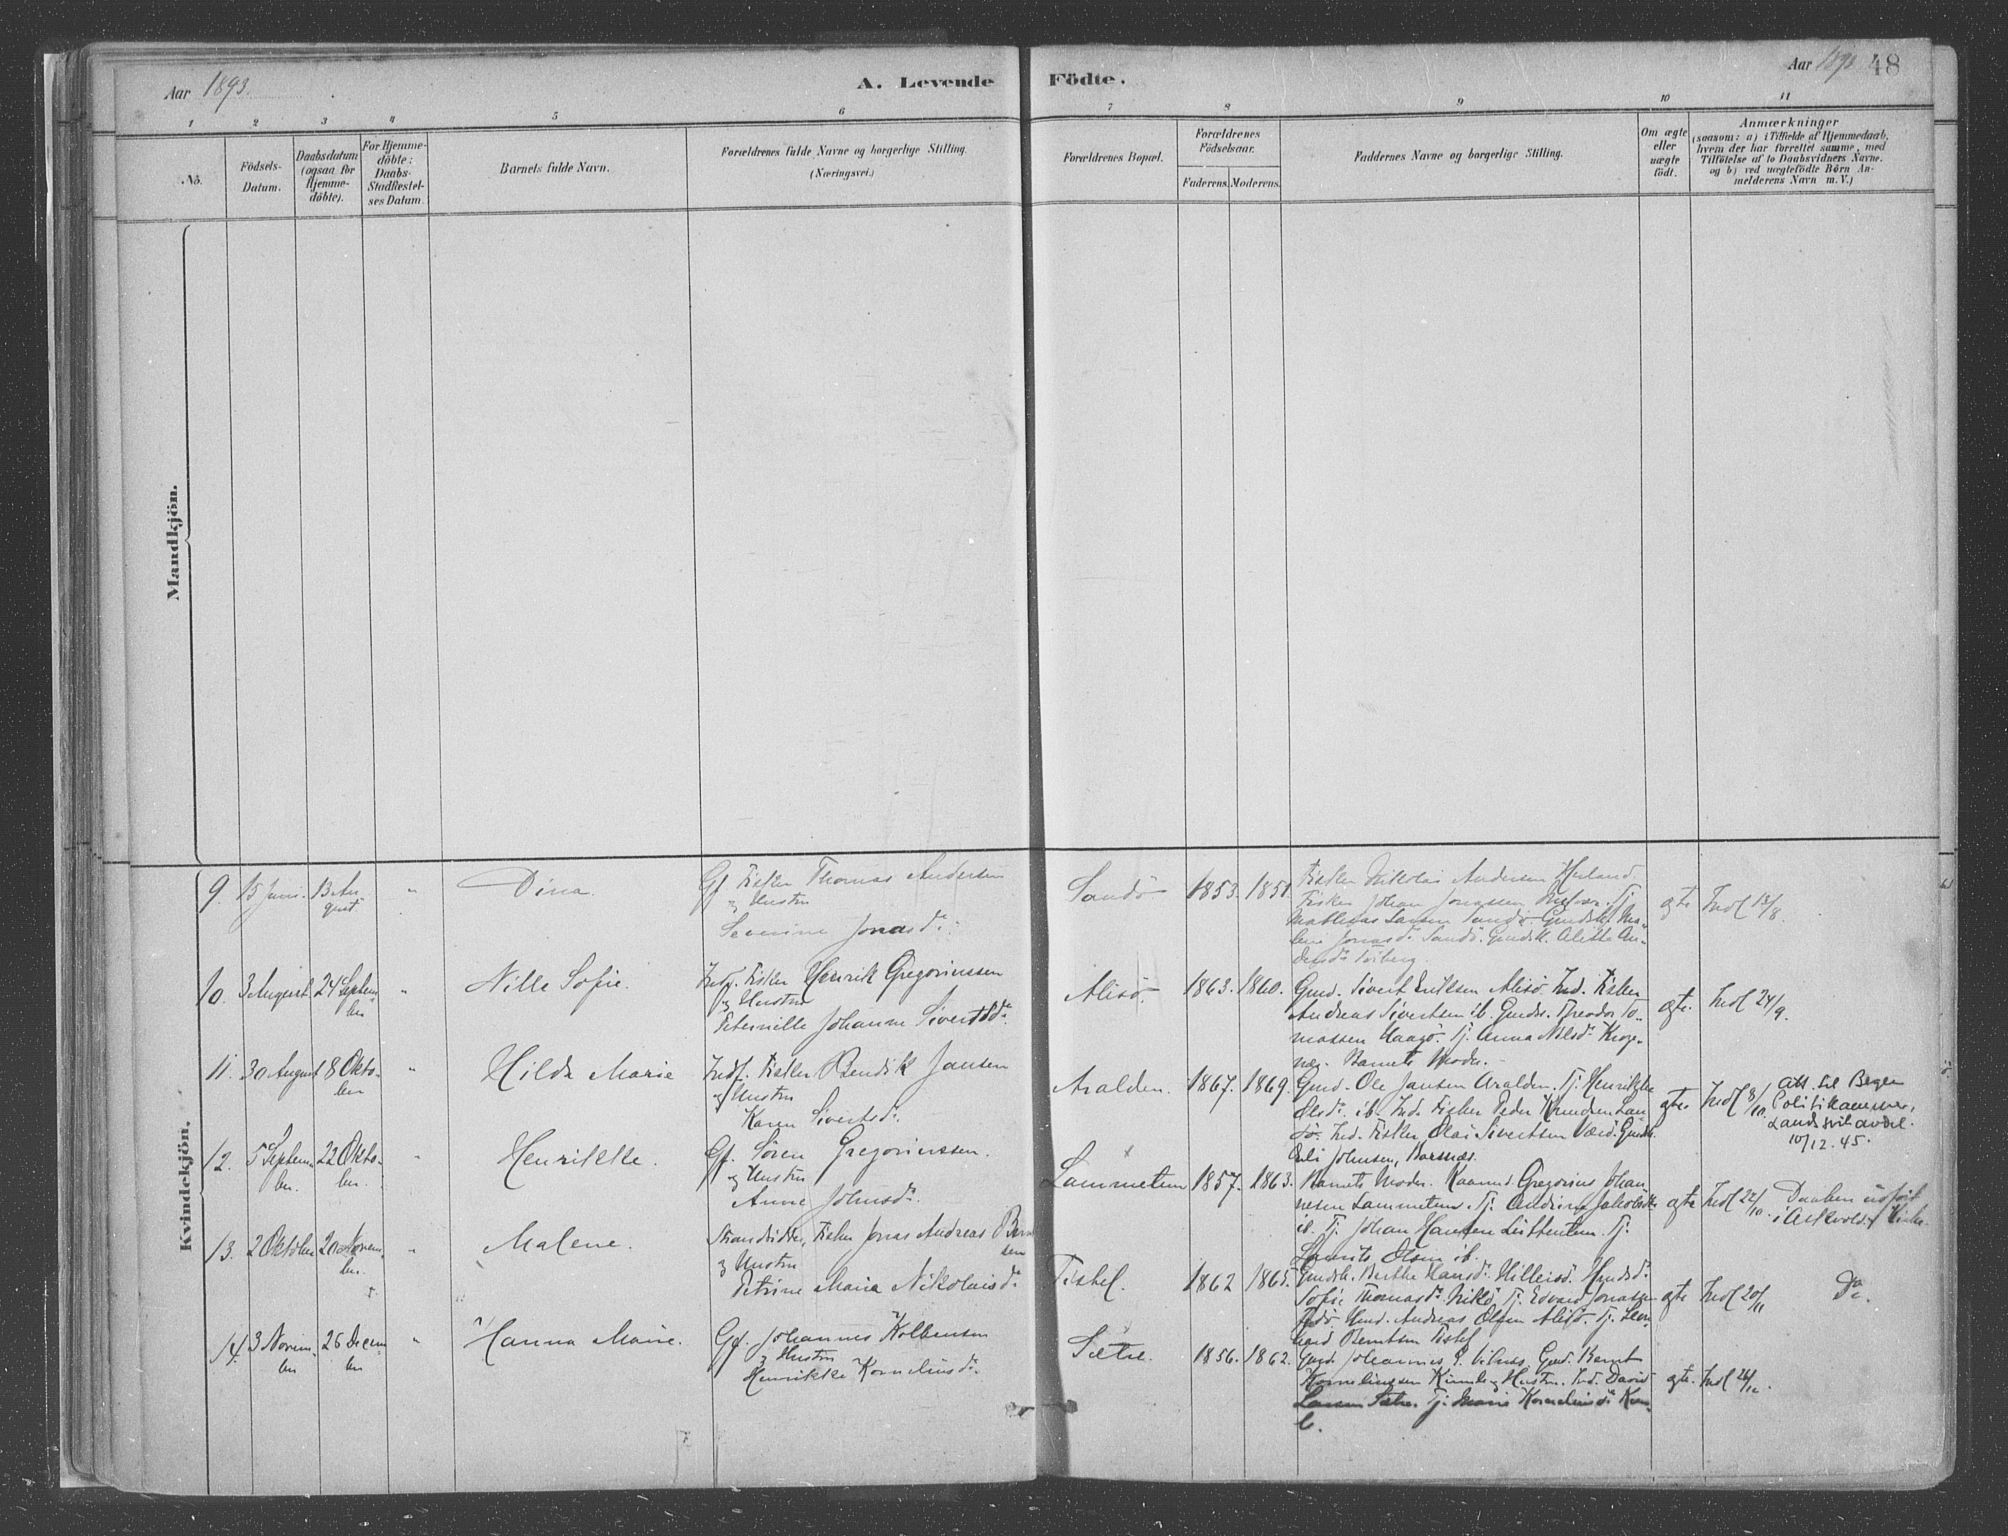 Aar 1893.
A. Levende Födte.
Aar 1893 48
1 2 3 4 5 6 7 8 9 10 11
No.
Födsels-
Datum.
Daabsdatum
(ogsaa for
Hjemme-
döbte).
For Hjemme-
döbte:
Daabs-
Stadfæstel-
ses Datum.
Barnets fulde Navn.
Forældrenes fulde Navne og borgerlige Stilling.
(Næringsvei.)
Forældrenes Bopæl.
Forældrenes
Födselsaar.
Faderens. Moderens.
Faddernes Navne og borgerlige Stilling.
Om ægte
eller
uægte
födt.
Anmærkninger
(saasom: a) i Tilfælde af Hjemmedaab,
hvem der har forrettet samme, med
Tilföielse af to Daabsvidners Navne.
og b) ved uægtefödte Börn An-
melderens Navn m. V.)
Mandkjön.
Kvindekjön.
9. 15 Juni. 13 Au-
gust " Dina. Gf. Fisker Thomas Andersen
og Hustru
Severine Jonasdr.
Sandö 1853. 1851. Fisker Nikolai Andersen Herland.
Fisker Johan Jonassen
Mathias Larsen Sandö Gmdsk. Ma-
Jonasdr. Sandö. Gmdsk. Alette An-
ægte Indl 13/8.
10. 3 August 24 Septem-
ber " Nille Sofie. Indf. Fisker Henrik Gregoriussen
og Hustru
Peternille Johanne Sivertsdr.
Alisö. 1863. 1860. Gmd. Sivert Eriksen Alisö. Ind. Fisker
Andreas Sivertsen ib. Gmds. Theodor To-
massen Haagö. Tj. Anna Nilsdr.
Barnets Moder.
ægte. Indl 24/9.
11. 30 August 8 Okto-
ber " Hilda Marie Indf. Fisker Bendik Jansen
og Hustru
Karen Sivertsdr.
Aralden. 1867. 1869. Gmd. Ole Jansen Aralden. Tj. Henrikke
Olsdr. ib. Ind. Fisker Peder Knudsen
Ind. Fisker Olai Sivertsen Værö. Gmdsk.
Johnsen,
ægte Indl 8/10. Att. til Bergen
Politikammer,
Landssvikavdel.
10/12.45.
12. 5 Septem-
ber. 22 Okto-
ber. Henrikke. Gf. Sören Gregoriussen.
og Hustru
Anne Johnsdr.
Lammetun 1857. 1863. Barnets Moder. Kaarmd. Gregorius Johan-
nesen Lammetun. Tj. Andrine Jakobsdr.
ib. Tj. Johan Hansen Tj.
Olsen ib.
ægte Indl 22/10. Daaben udfört
i Askvold Kirke.
13. 2 Oktober 20 Novem-
ber. " Malene. Strandsidder, Fisker Jonas Andreas Bern-
sen
og Hustru
Petrine Maria Nikolaisdr.
Tistel. 1862 1865. Gmdsk. Berthe Hansdr. Hillersö.
Sofie Thomasdr. Tj. Edvard Jonassen
Gmd. Andreas Olsen Alisö. Tj.
Berntsen Tistel
ægte Indl 20/11 Do.
14. 3 Novem-
ber 26 Decem-
ber " Hanna Marie. Gf. Johannes Kolbensen
og Hustru
Henrikke Korneliusdr.
Sætre. 1856. 1862. Gmd. Johannes P. Vilnes. Gmd. Bernt
Korneliussen og Hustru. Ind. David
Larsen Sætre. Tj. Marie Korneliusdr.
ægte. Indl 26/12.